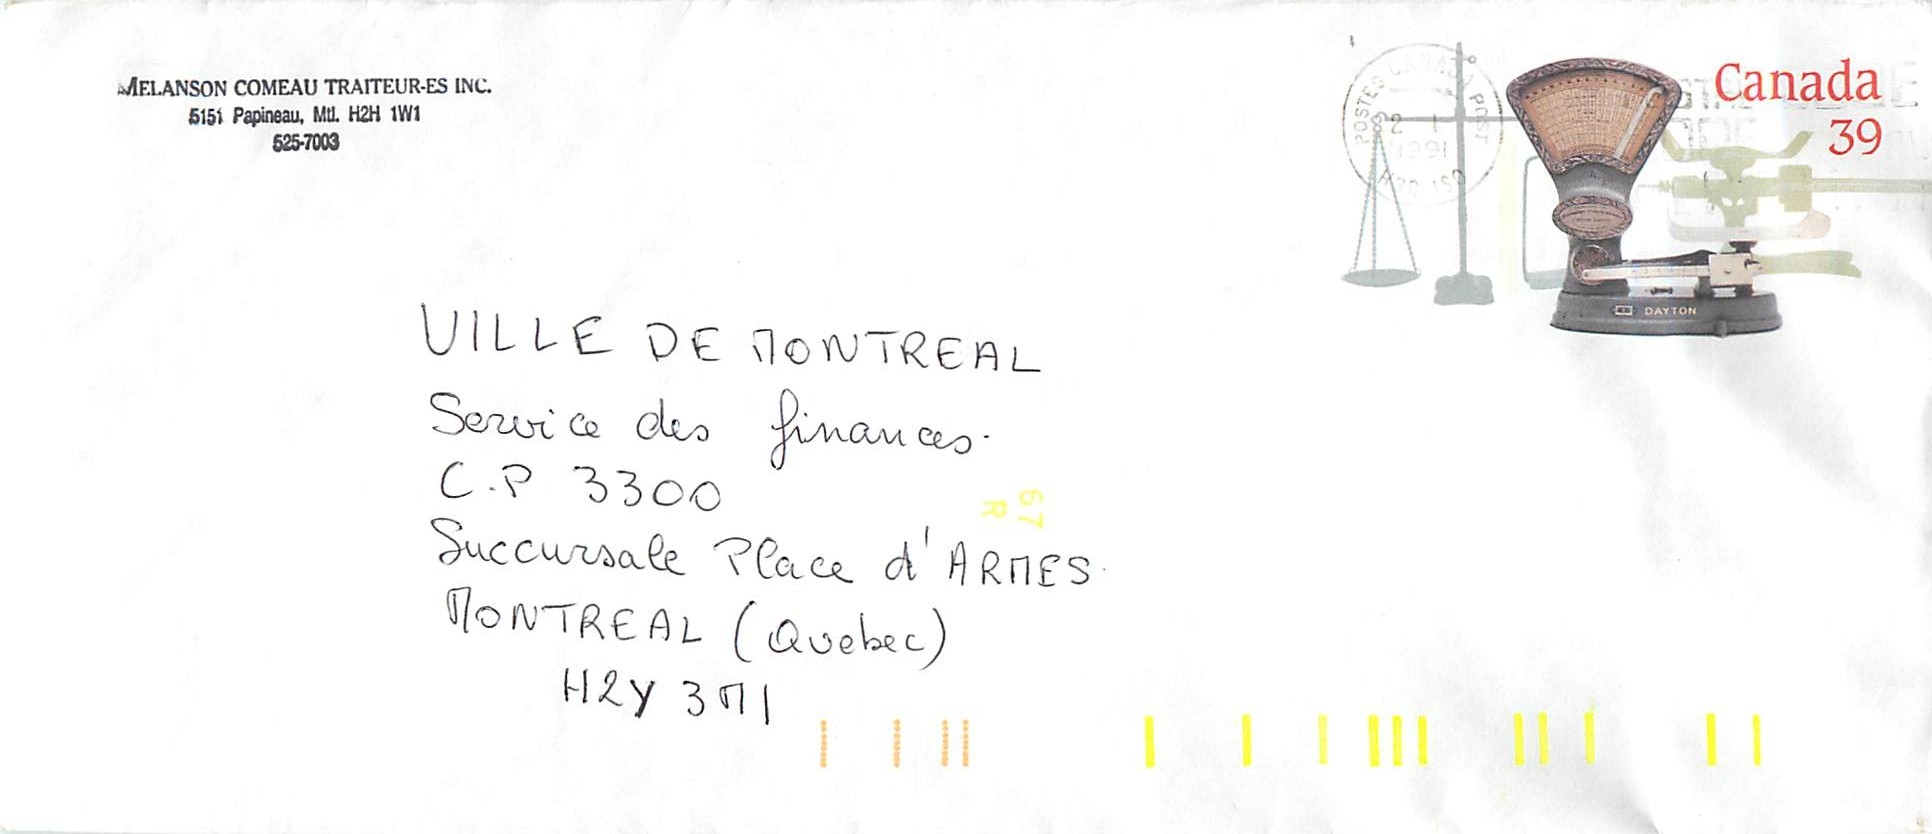 MELANSON COMEAU TRAITEUR-ES INC.
5151 Papineau, Mtl. H2H 1W1
525-7003
POSTES CANADA POST
2 - I
1991
Canada
39
DAYTON
VILLE DE MONTREAL
Service des finances.
C.P 3300
Succursale Place d'ARMES.
MONTREAL (Quebec)
H2Y 3M1
67
R